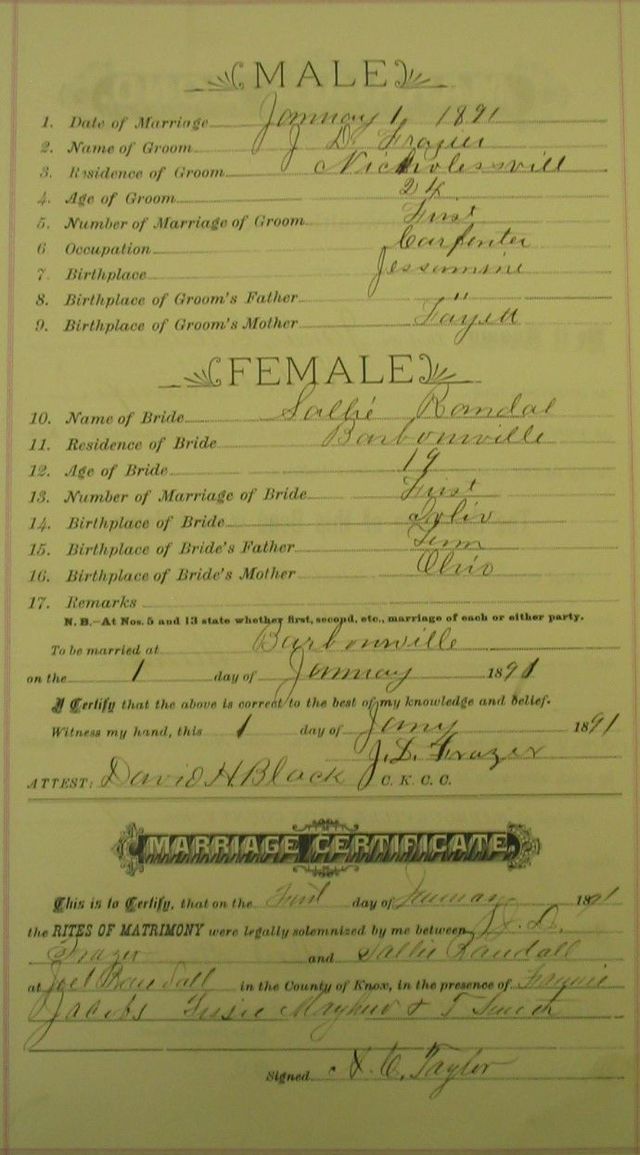 MALE
1. Date of Marriage Jannuay 1 1891
2. Name of Groom J D. Frazier
3. Residence of Groom Nicholessvill
4. Age of Groom 24
5. Number of Marriage of Groom First
6 Occupation Carpenter
7. Birthplace Jessamine
8. Birthplace of Groom's Father "
9. Birthplace of Groom's Mother Fayett
FEMALE
10. Name of Bride Sallie Randal
11. Residence of Bride Barbourville
12. Age of Bride 19
13. Number of Marriage of Bride First
14. Birthplace of Bride
15. Birthplace of Bride's Father Tenn
16. Birthplace of Bride's Mother Ohio
17. Remarks
N. B.—At Nos. 5 and 13 state whether first, second, etc., marriage of each or either party.
To be married at Barbourville
on the 1 day of Jannuay 1891
I Certify that the above is correct to the best of my knowledge and belief.
Witness my hand, this 1 day of Jany 1891
J. D. Frazer
ATTEST: David H. Black C. K. C. C.
MARRIAGE CERTIFICATE.
This is to Certify, that on the First day of January 1891
the RITES OF MATRIMONY were legally solemnized by me between J. D.
Frazer and Sallie Randall
at Joel Randall in the County of Knox, in the presence of Fannie
Jacobs Susie Mayhew & T Smith
Signed C. Taylor